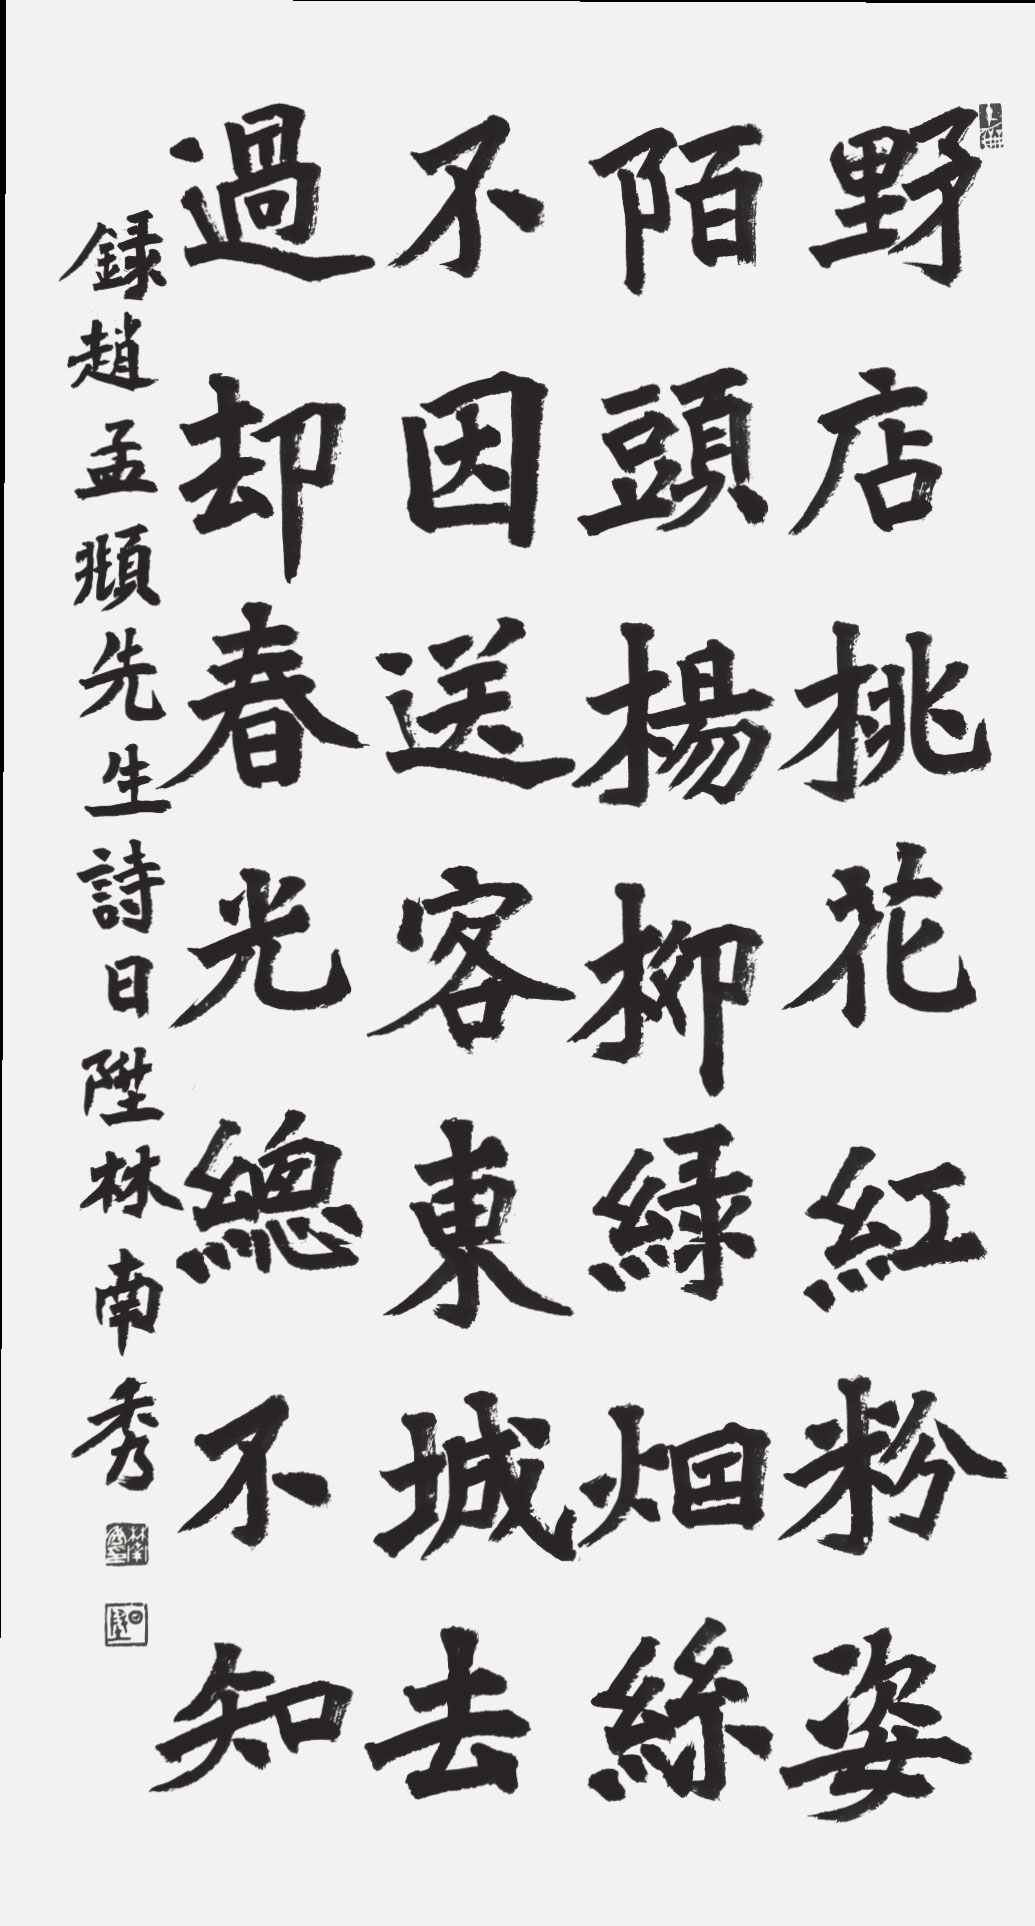 野店桃花紅粉姿
陌頭楊柳緑烟絲
不因送客東城去
過却春光總不知
録趙孟頫先生詩日陞林南秀